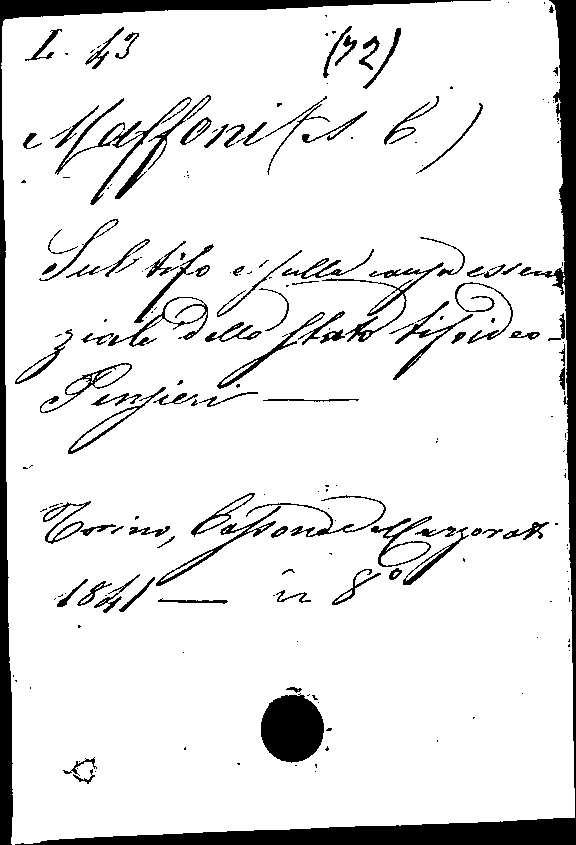 L. 43 (72)
Maffoni (A. C.)
Sul tifo e sulla causa essen
ziale dello stato tifoideo -
Pensieri —
Torino, Cassone e Marzorati
1841 — in 8°